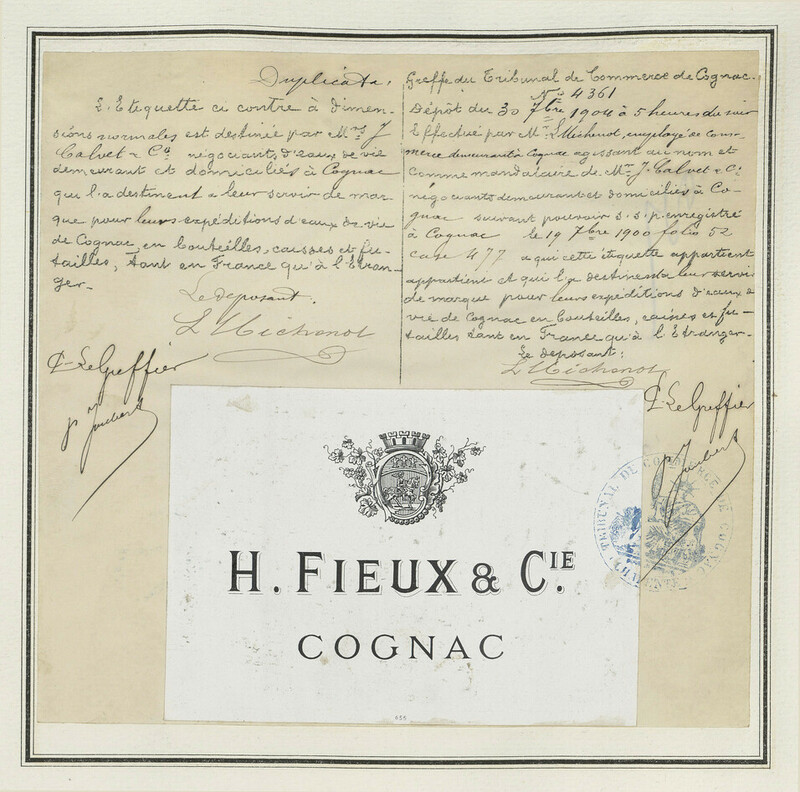 Duplicata.
L'Etiquette ci contre à dimen-
sions normales est destinée par M.rs J
Calvet & Cie négociants d'eaux de vie
demeurant et domiciliés à Cognac
qui l'a destinent a leur servir de mar-
que pour leurs expéditions d'eaux de vie
de Cognac, en bouteilles, caisses et fu-
tailles, tant en France qu'à l'Etran-
ger.-
Le deposant.
L Michenot
P. Le Greffier
p Jaubert
Greffe du Tribunal de Commerce de Cognac.
No 4361
Dépôt du 30 7bre 1904 à 5 heures du soir
Effectué par Mr L Michenot, employé de com-
merce demeurant à Cognac agissant au nom et
comme mandataire de Mrs J. Calvet & Cie
négociants demeurant et domiciliés à Co-
gnac suivant pouvoir s.s.p. enregistré
à Cognac le 19 7bre 1900 folio 52
case 477 a qui cette étiquette appartient
appartient et qui l'a destinent a leur servir
de marque pour leurs expéditions d'eaux de
vie de Cognac en bouteilles, caisses et fu-
tailles tant en France qu'à l'Etranger-
Le deposant:
L Michenot
P. Le Greffier
p Jaubert
TRIBUNAL DE COMMERCE DE COGNAC
H. FIEUX & CIE.
COGNAC